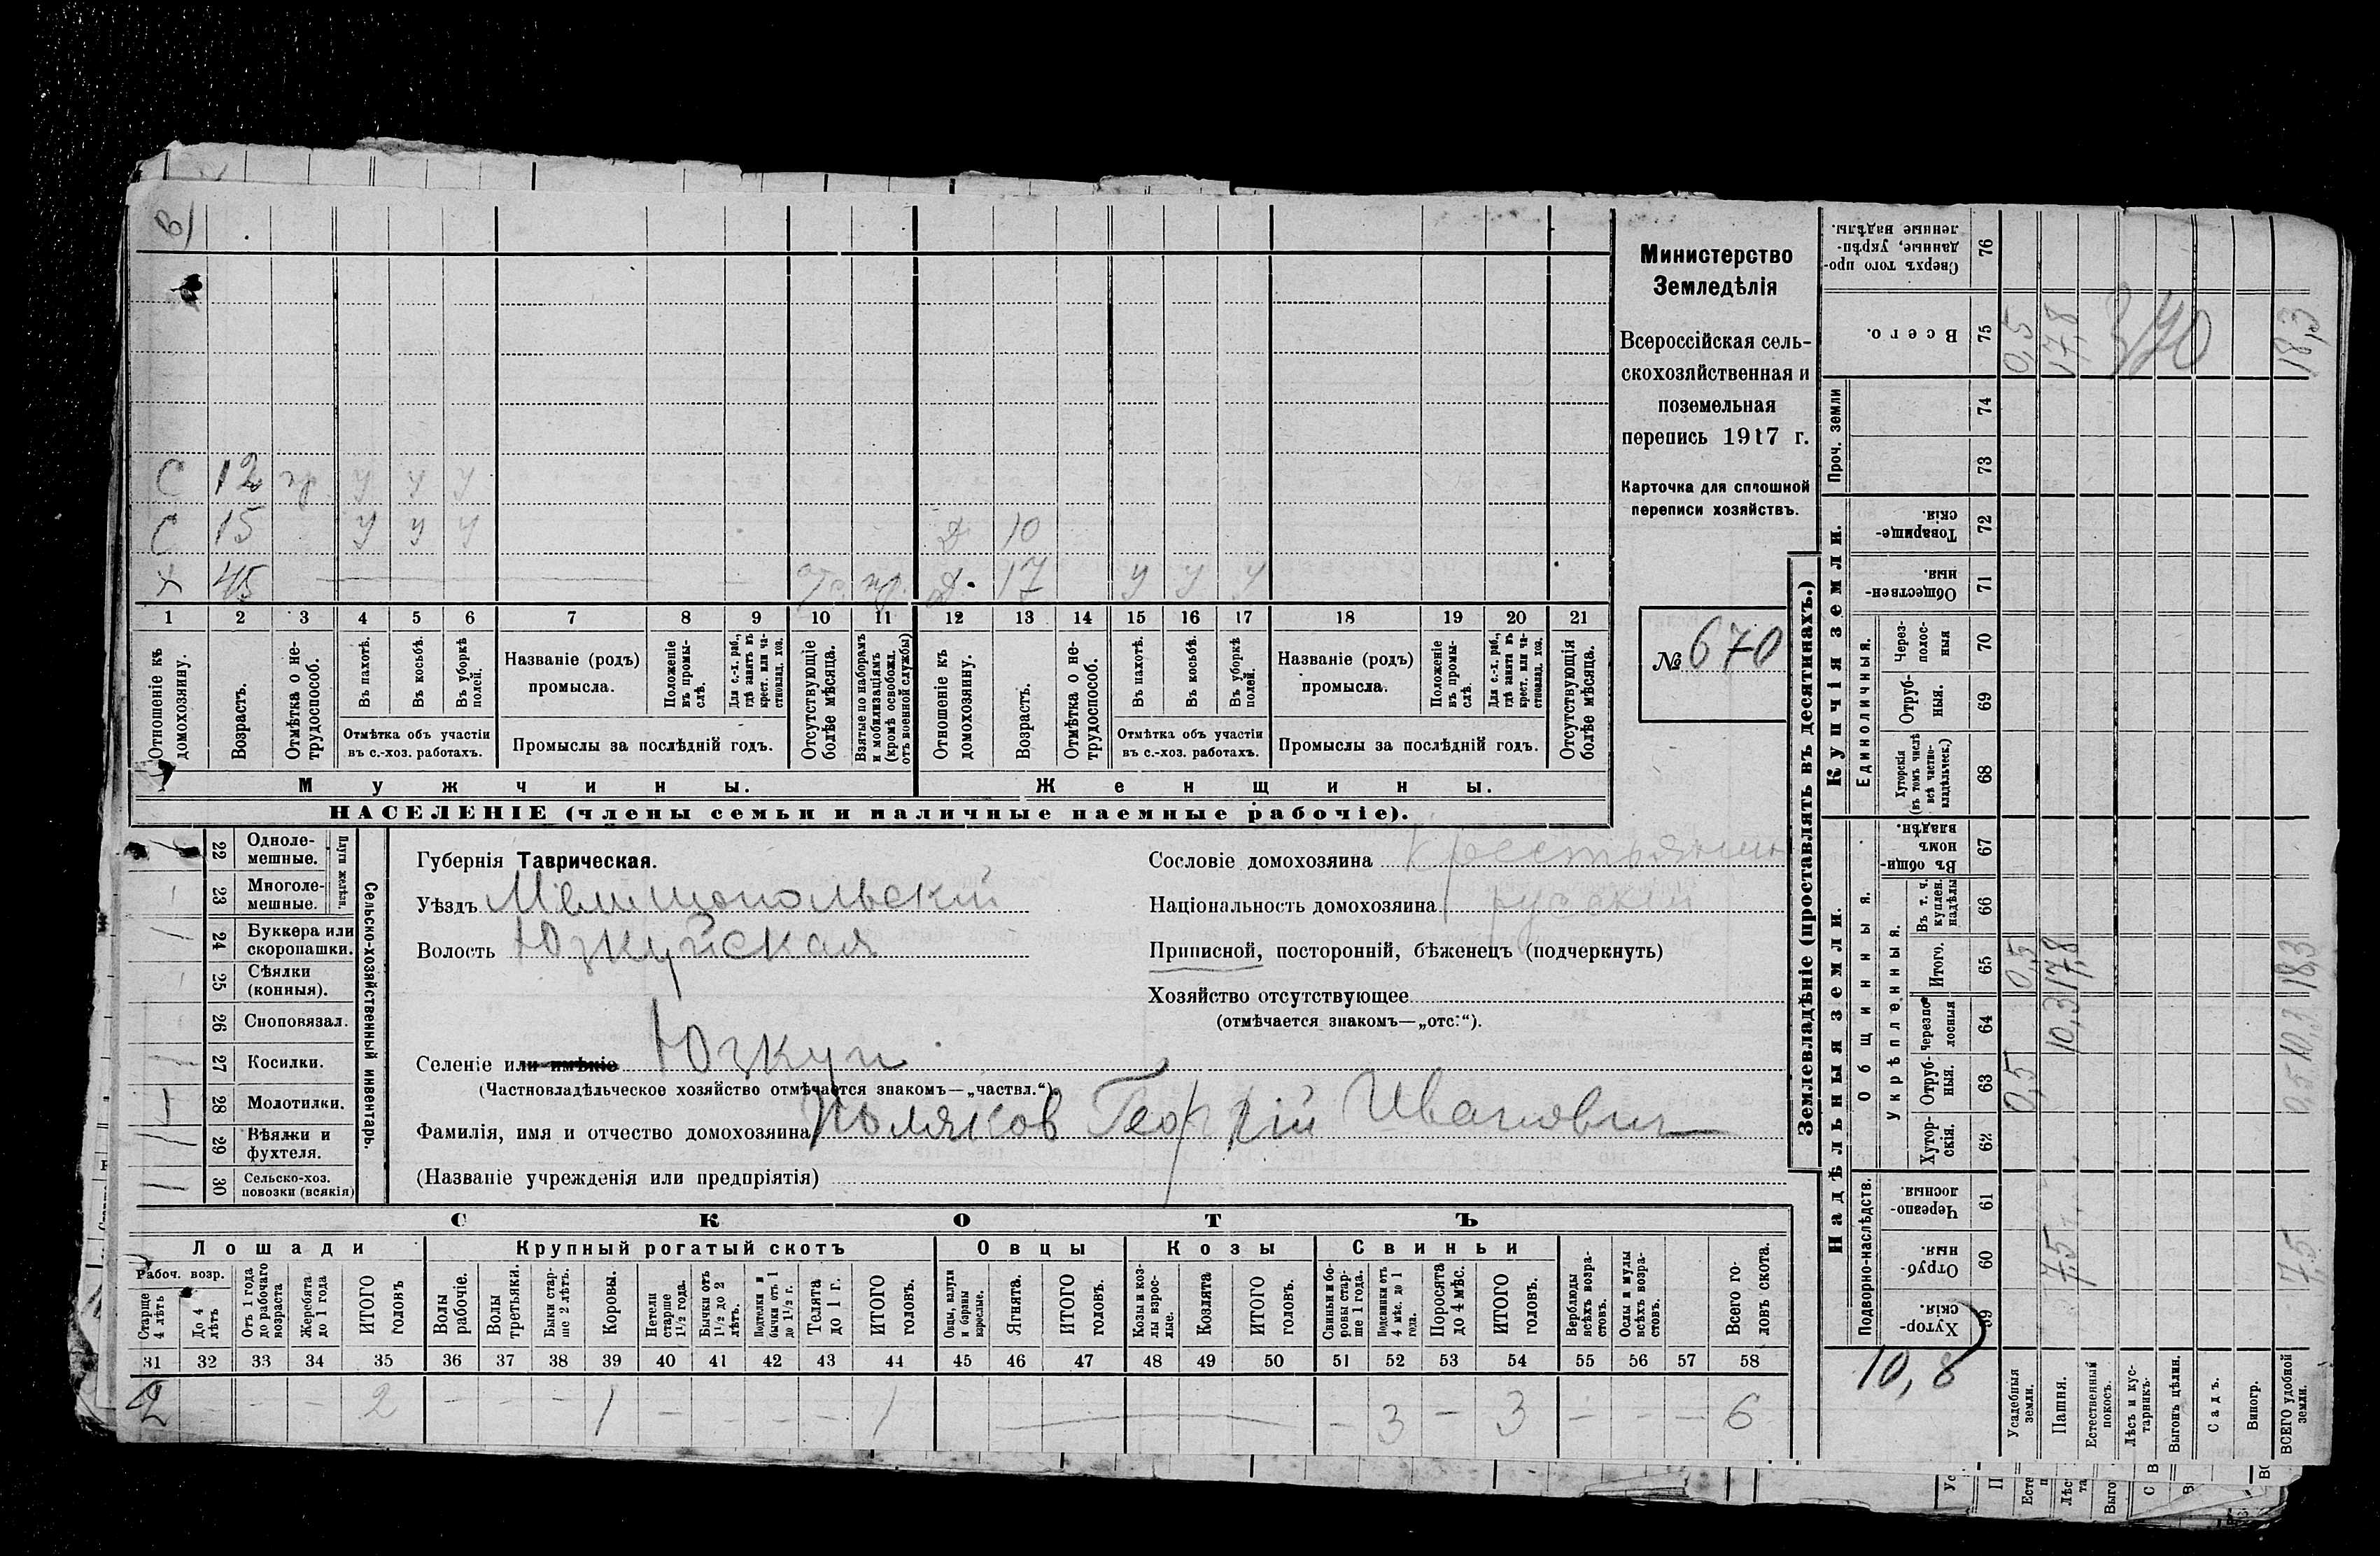 В)
С 12 у у у
С 15 у у у Д 10
Х 45 Д. 17 у у у
1 2 3 4 5 6 7 8 9 10 11 12 13 14 15 16 17 18 19 20 21
Отношеніе къ домохозяину.
Возрастъ.
Отмѣтка о нетрудоспособ.
Въ пахотѣ.
Въ косьбѣ.
Въ уборкѣ полей.
Отмѣтка объ участіи въ с.-хоз. работахъ.
Названіе (родъ) промысла.
Положеніе въ промыслѣ.
Для с.-х. раб., гдѣ занятъ въ крест. или частновлад. хоз.
Промыслы за послѣдній годъ.
Отсутствующіе болѣе мѣсяца.
Взятые по наборамъ и мобилизаціямъ (кромѣ освобожд. отъ военной службы)
Отношеніе къ домохозяину.
Возрастъ.
Отмѣтка о нетрудоспособ.
Въ пахотѣ.
Въ косьбѣ.
Въ уборкѣ полей.
Отмѣтка объ участіи въ с.-хоз. работахъ.
Названіе (родъ) промысла.
Положеніе въ промыслѣ.
Для с.-х. раб., гдѣ заняти въ крест. или частновлад. хоз.
Промыслы за послѣдній годъ.
Отсутствующія болѣе мѣсяца.
Мужчины. Женщины.
НАСЕЛЕНІЕ (члены семьи и наличные наемные рабочіе).
Министерство
Земледѣлія
Всероссійская сель-
скохозяйственная и
поземельная
перепись 1917 г.
Карточка для сплошной
переписи хозяйствъ.
№ 670
22 Однолемешные.
23 Многолемешные.
Плуги желѣзн.
24 Буккера или скоропашки.
25 Сѣялки (конныя).
26 Сноповязал.
27 Косилки.
28 Молотилки.
29 Вѣялки и фухтеля.
30 Сельско-хоз. повозки (всякія)
Сельско-хозяйственный инвентарь.
Губернія Таврическая.
Уѣздъ Мелитопольскій
Волость Юзкуйская
Селеніе или имѣніе Юзкуи
(Частновладѣльческое хозяйство отмѣчается знакомъ—„частвл.“)
Фамилія, имя и отчество домохозяина Поляков Георгій Иванович
(Названіе учрежденія или предпріятія)
Сословіе домохозяина Крестьянин
Національность домохозяина русскій
Приписной, посторонній, бѣженецъ (подчеркнуть)
Хозяйство отсутствующее
(отмѣчается знакомъ—„отс.“).
СКОТЪ
Лошади
Крупный рогатый скотъ
Овцы
Козы
Свиньи
Рабоч. возр.
Старше 4 лѣтъ
До 4 лѣтъ
Отъ 1 года до рабочаго возраста
Жеребята до 1 года
ИТОГО головъ
Волы рабочіе.
Волы третьяки.
Быки старше 2 лѣтъ.
Коровы.
Нетели старше 1½ года.
Бычки отъ 1½ до 2 лѣтъ.
Подтелки и бычки отъ 1 до 1½ г.
Телята до 1 г.
ИТОГО головъ.
Овцы, валухи и бараны взрослые.
Ягнята.
ИТОГО головъ.
Козы и козлы взрослые.
Козлята
ИТОГО головъ.
Свиньи и боровы старше 1 года.
Подсвинки отъ 4 мѣс. до 1 года.
Поросята до 4 мѣс.
ИТОГО головъ.
Верблюды всѣхъ возрастовъ.
Ослы и мулы всѣхъ возрастовъ.
Всего головъ скота.
31 32 33 34 35 36 37 38 39 40 41 42 43 44 45 46 47 48 49 50 51 52 53 54 55 56 57 58
2 - - - 2 - - - 1 - - - - 1 — - 3 - 3 - - - 6
Землевладѣніе (проставлять въ десятинахъ.)
Надѣльныя земли.
Купчія земли.
Проч. земли
Подворно-наслѣдств.
Общинныя.
Укрѣпленныя.
Единоличныя.
Сверхъ того проданные, укрѣпленные надѣлы. 76
Всего. 75
74
73
Товарищескія. 72
Общественныя. 71
Черезполосныя 70
Отрубныя. 69
Хуторскія (въ томъ числѣ всѣ частновладѣльческ.) 68
Въ общинномъ владѣн. 67
Въ т. ч. куплен. надѣлы 66
Итого. 65
Черезполосныя 64
Отрубныя. 63
Хуторскія. 62
Черезполосныя. 61
Отрубныя. 60
Хуторскія. 59
10,8
Усадебныя земли. 0,5 0,5 0,5
Пашня. 7,5 10,3 17,8 17,8
Естественный покосъ.
Лѣсъ и кустарникъ.
Выгонъ цѣлин.
Садъ.
Виногр.
ВСЕГО удобной земли. 7,5 0,5 10,3 18,3 18,3
370